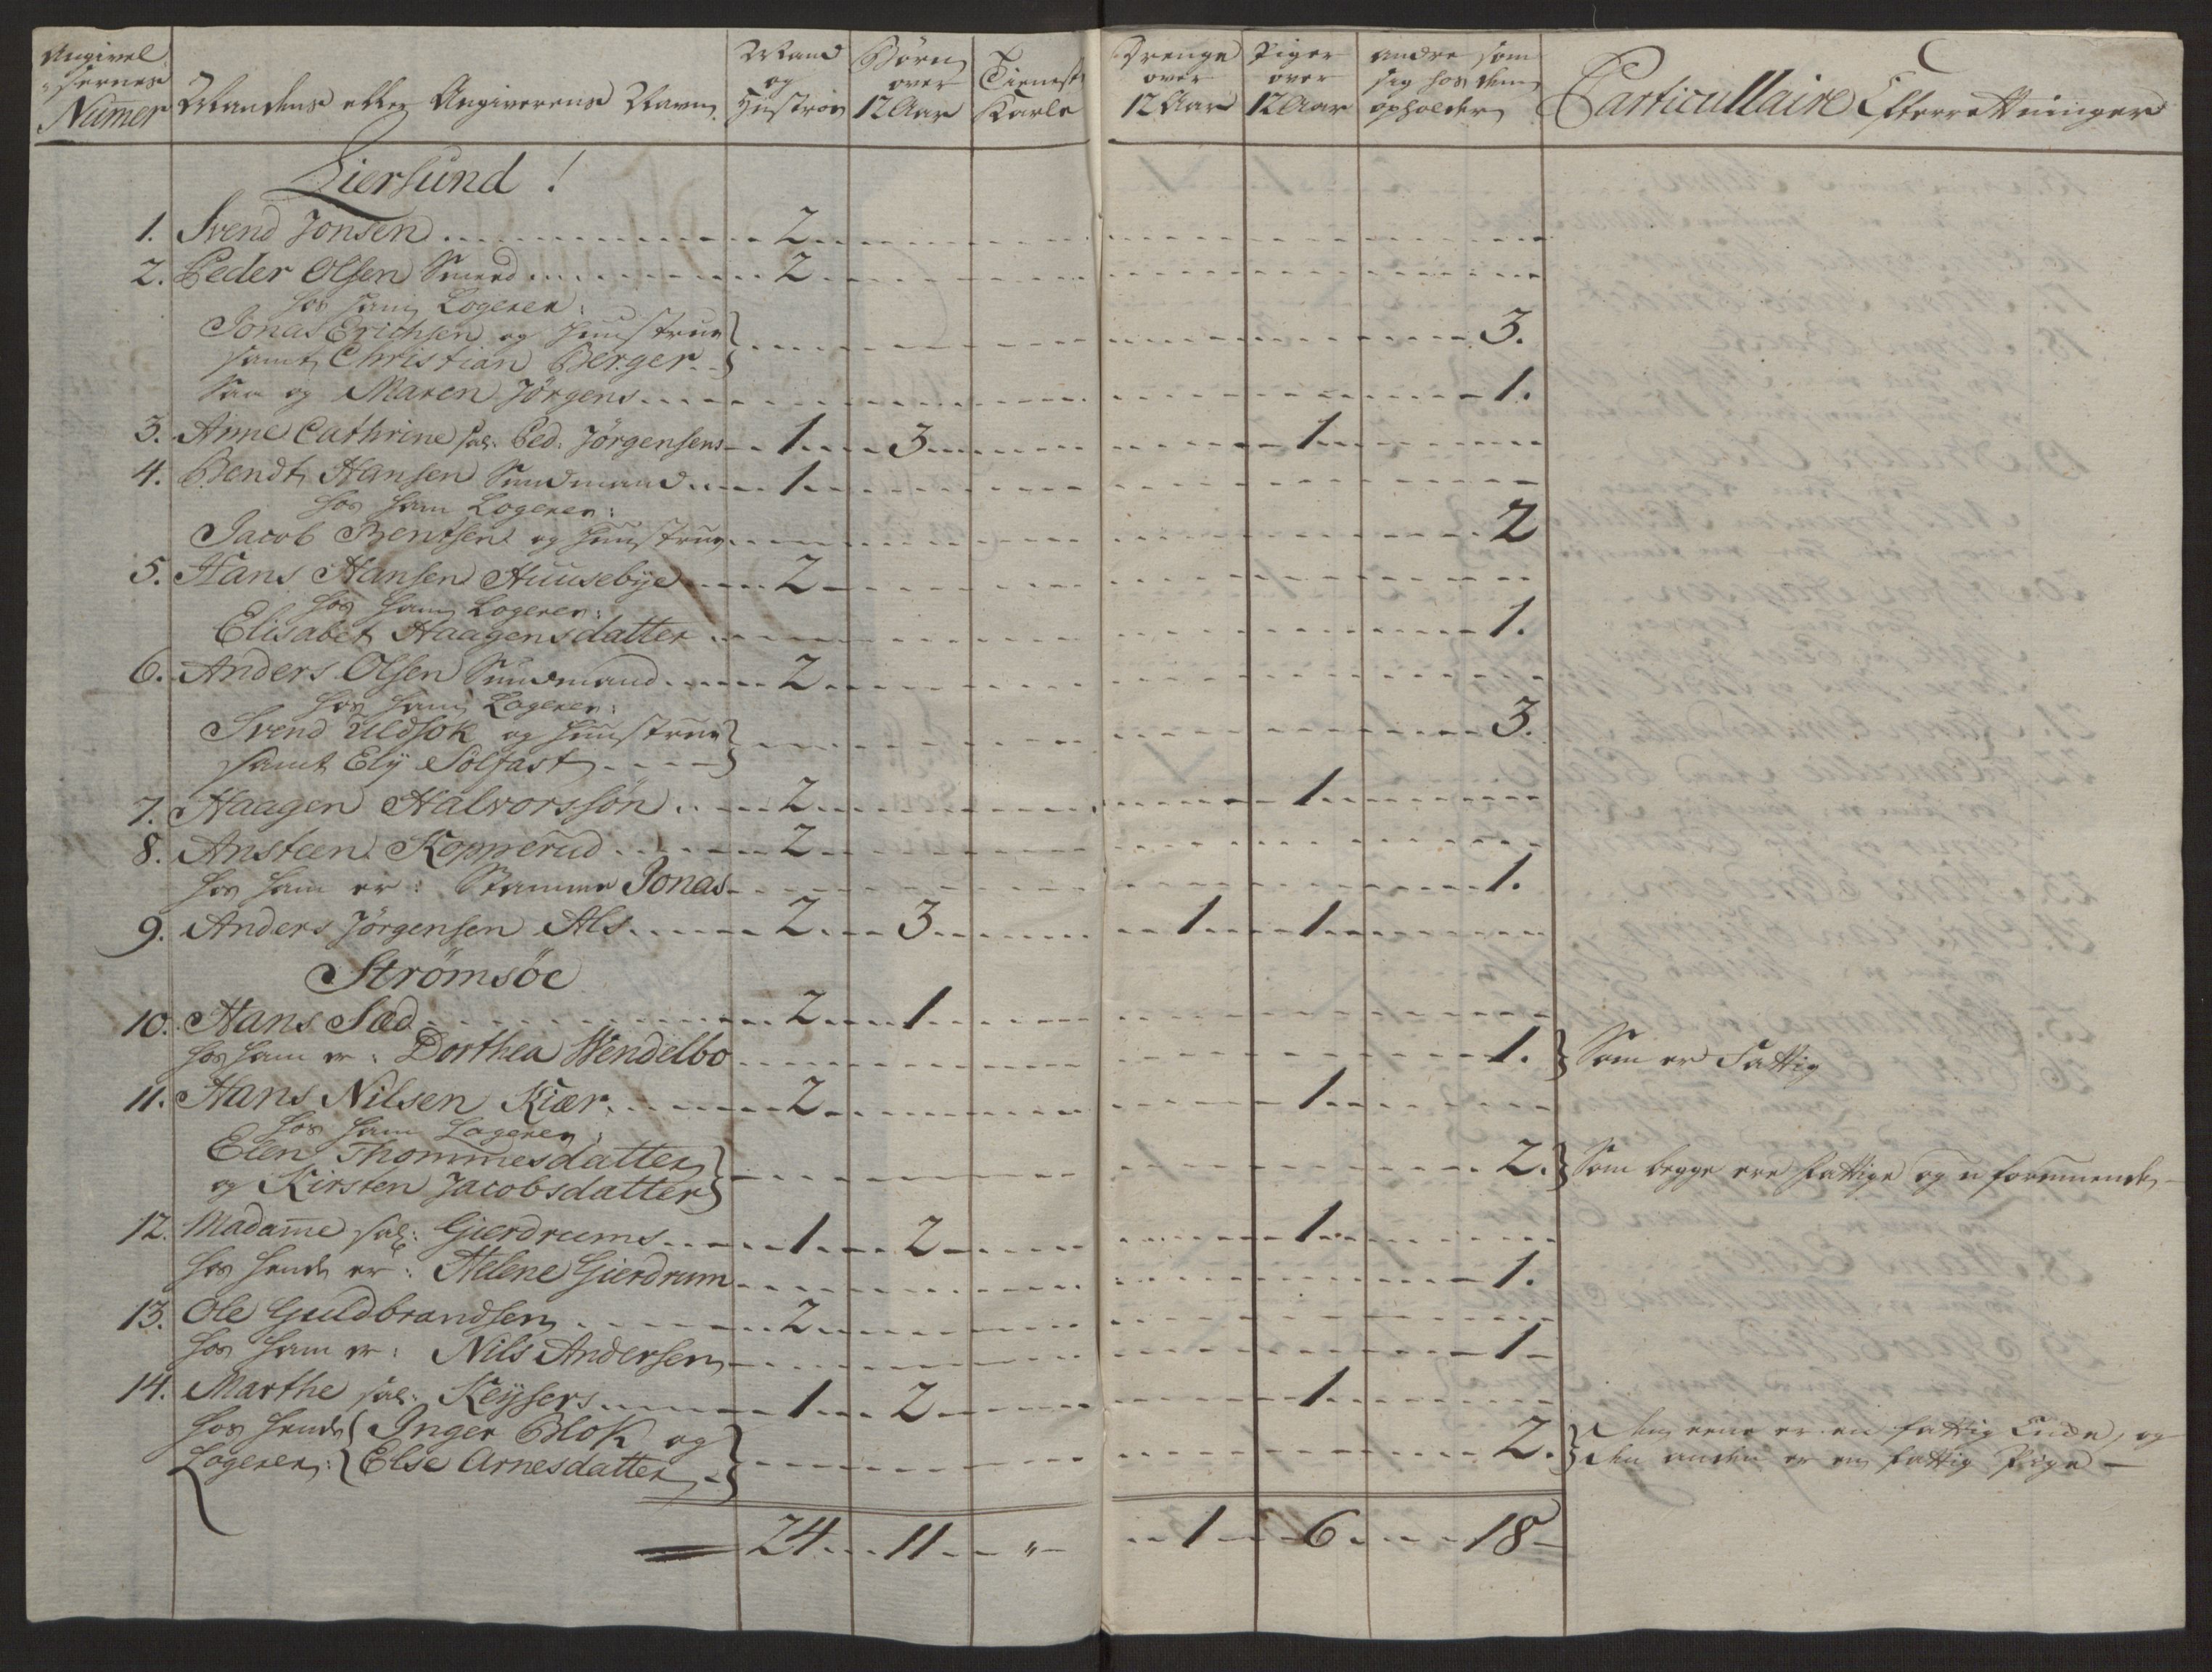 Angivel
sernes
Numer
Mandens eller Angiverens Navn
Mand
og
Hustroe
Börn
over
12 Aar
Tienest
Karle
Drenge
over
12 Aar
Piger
over
12 Aar
andre som
sig hos dem
opholder
Particullaire Efterretninger
Liersund !
1. Svend Jonsen 2
2. Peder Olsen Smed 2
hos ham Logerer:
Jonas Erichsen og Huustrue
samt Christian Berger 3.
Saa og Maren Jörgens 1.
3. Anne Cathrine sal: Ped: Jörgensens 1 3 1
4. Bendt Hansen Sundmand 1
hos ham Logerer:
Jacob Bentsen og Huustrue 2
5. Hans Hansen Huusebye 2
hos ham Logerer:
Elisabet Haagensdatter 1.
6. Anders Olsen Sundmand 2
hos ham Logerer:
Svend Uldsok og Huustrue
samt Ely Solfast 3.
7. Haagen Halvorsson 2 1
8. Ansteen Kopperud 2
hos ham er: Stamme Jonas 1.
9. Anders Jörgensen Als 2 3 1 1
Strömsöe
10. Hans Sæd 2 1
hos ham er: Dorthea Wendelbo 1. Som er Fattig
11. Hans Nilsen Kiær 2 1
hos ham Logerer:
Elen Thommesdatter
og Kirsten Jacobsdatter 2. Som begge ere fattige og uformuende
12. Madame sal: Gierdrums 1 2 1
hos hende er: Helene Gierdrum 1.
13. Ole Guldbrandsen 2
hos ham er: Nils Andersen 1
14. Marthe sal: Keysers 1 2 1
hos hende Inger Blok og
Logerer: Else Arnesdatter 2.
den eene er en fattig Enke, og
den anden er en fattig Pige
24 11 " 1 6 18